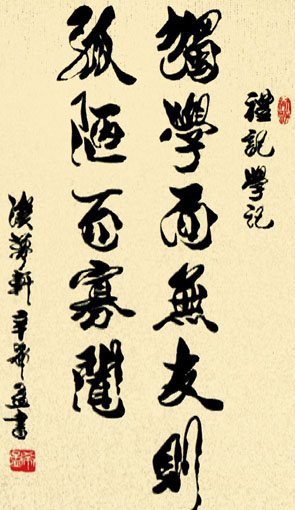 禮記學記
獨學而無友則
孤陋而寡聞
軒辛
書